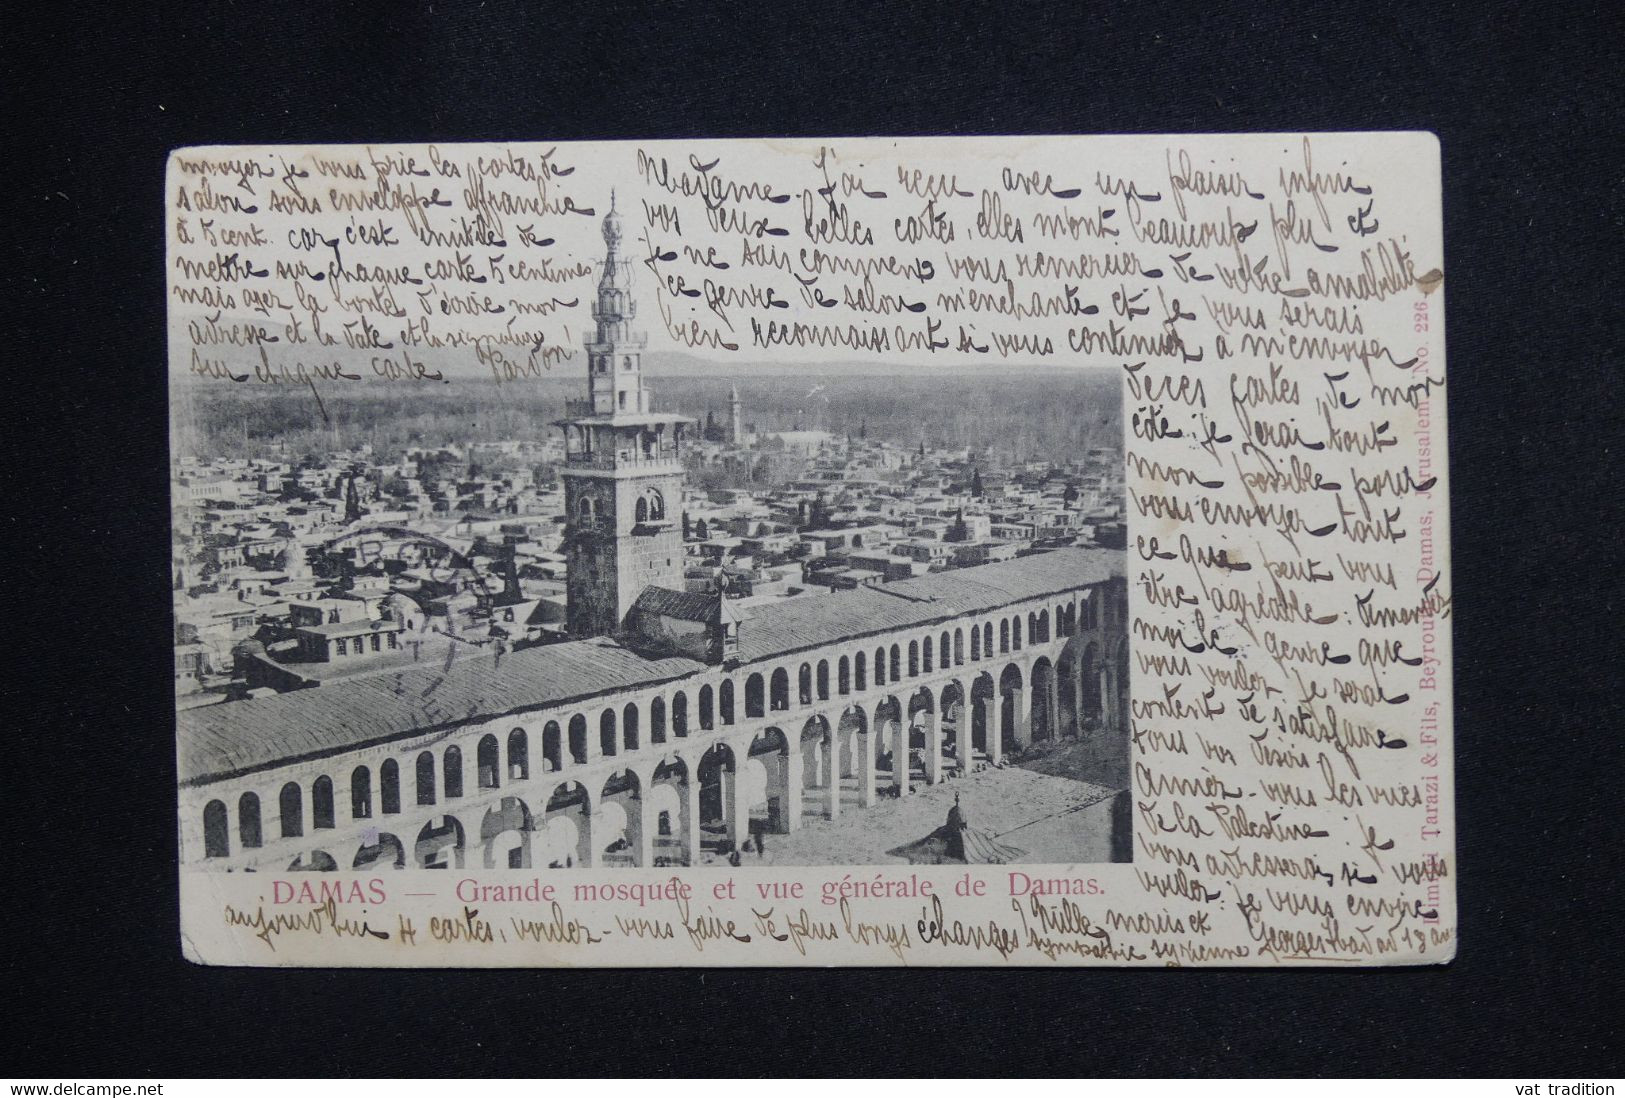 Madame. J'ai reçu avec un plaisir infini
vos deux belles cartes, elles m'ont beaucoup plu et
je ne sais comment vous remercier de votre amabilité
ce genre de salon m'enchante et je vous serais
bien reconnaissant si vous continuez à m'envoyer
de ces cartes, de mon
côté je ferai tout
mon possible pour
vous envoyer tout
ce que peut vous
être agréable : demandez
moi le genre que
vous voulez je serai
content de satisfaire
tous vos desirs
Aimez-vous les vues
de la Palestine je
vous adresserai, si vous
voulez : je vous envoie
aujourd'hui 4 cartes, voulez-vous faire de plus longs échanges? Mille mercis et
sympathie syrienne Georges 13
envoyez je vous prie les cartes de
salon sous enveloppe affranchie
à 5 cent. car c'est inutile de
mettre sur chaque carte 5 centimes
mais ayez la bonté d'écrire mon
adresse et la date et la signature
sur chaque carte. Pardon!
DAMAS — Grande mosquée et vue générale de Damas.
Dimitri Tarazi & Fils, Beyrouth, Damas, Jérusalem. No. 226
vat tradition